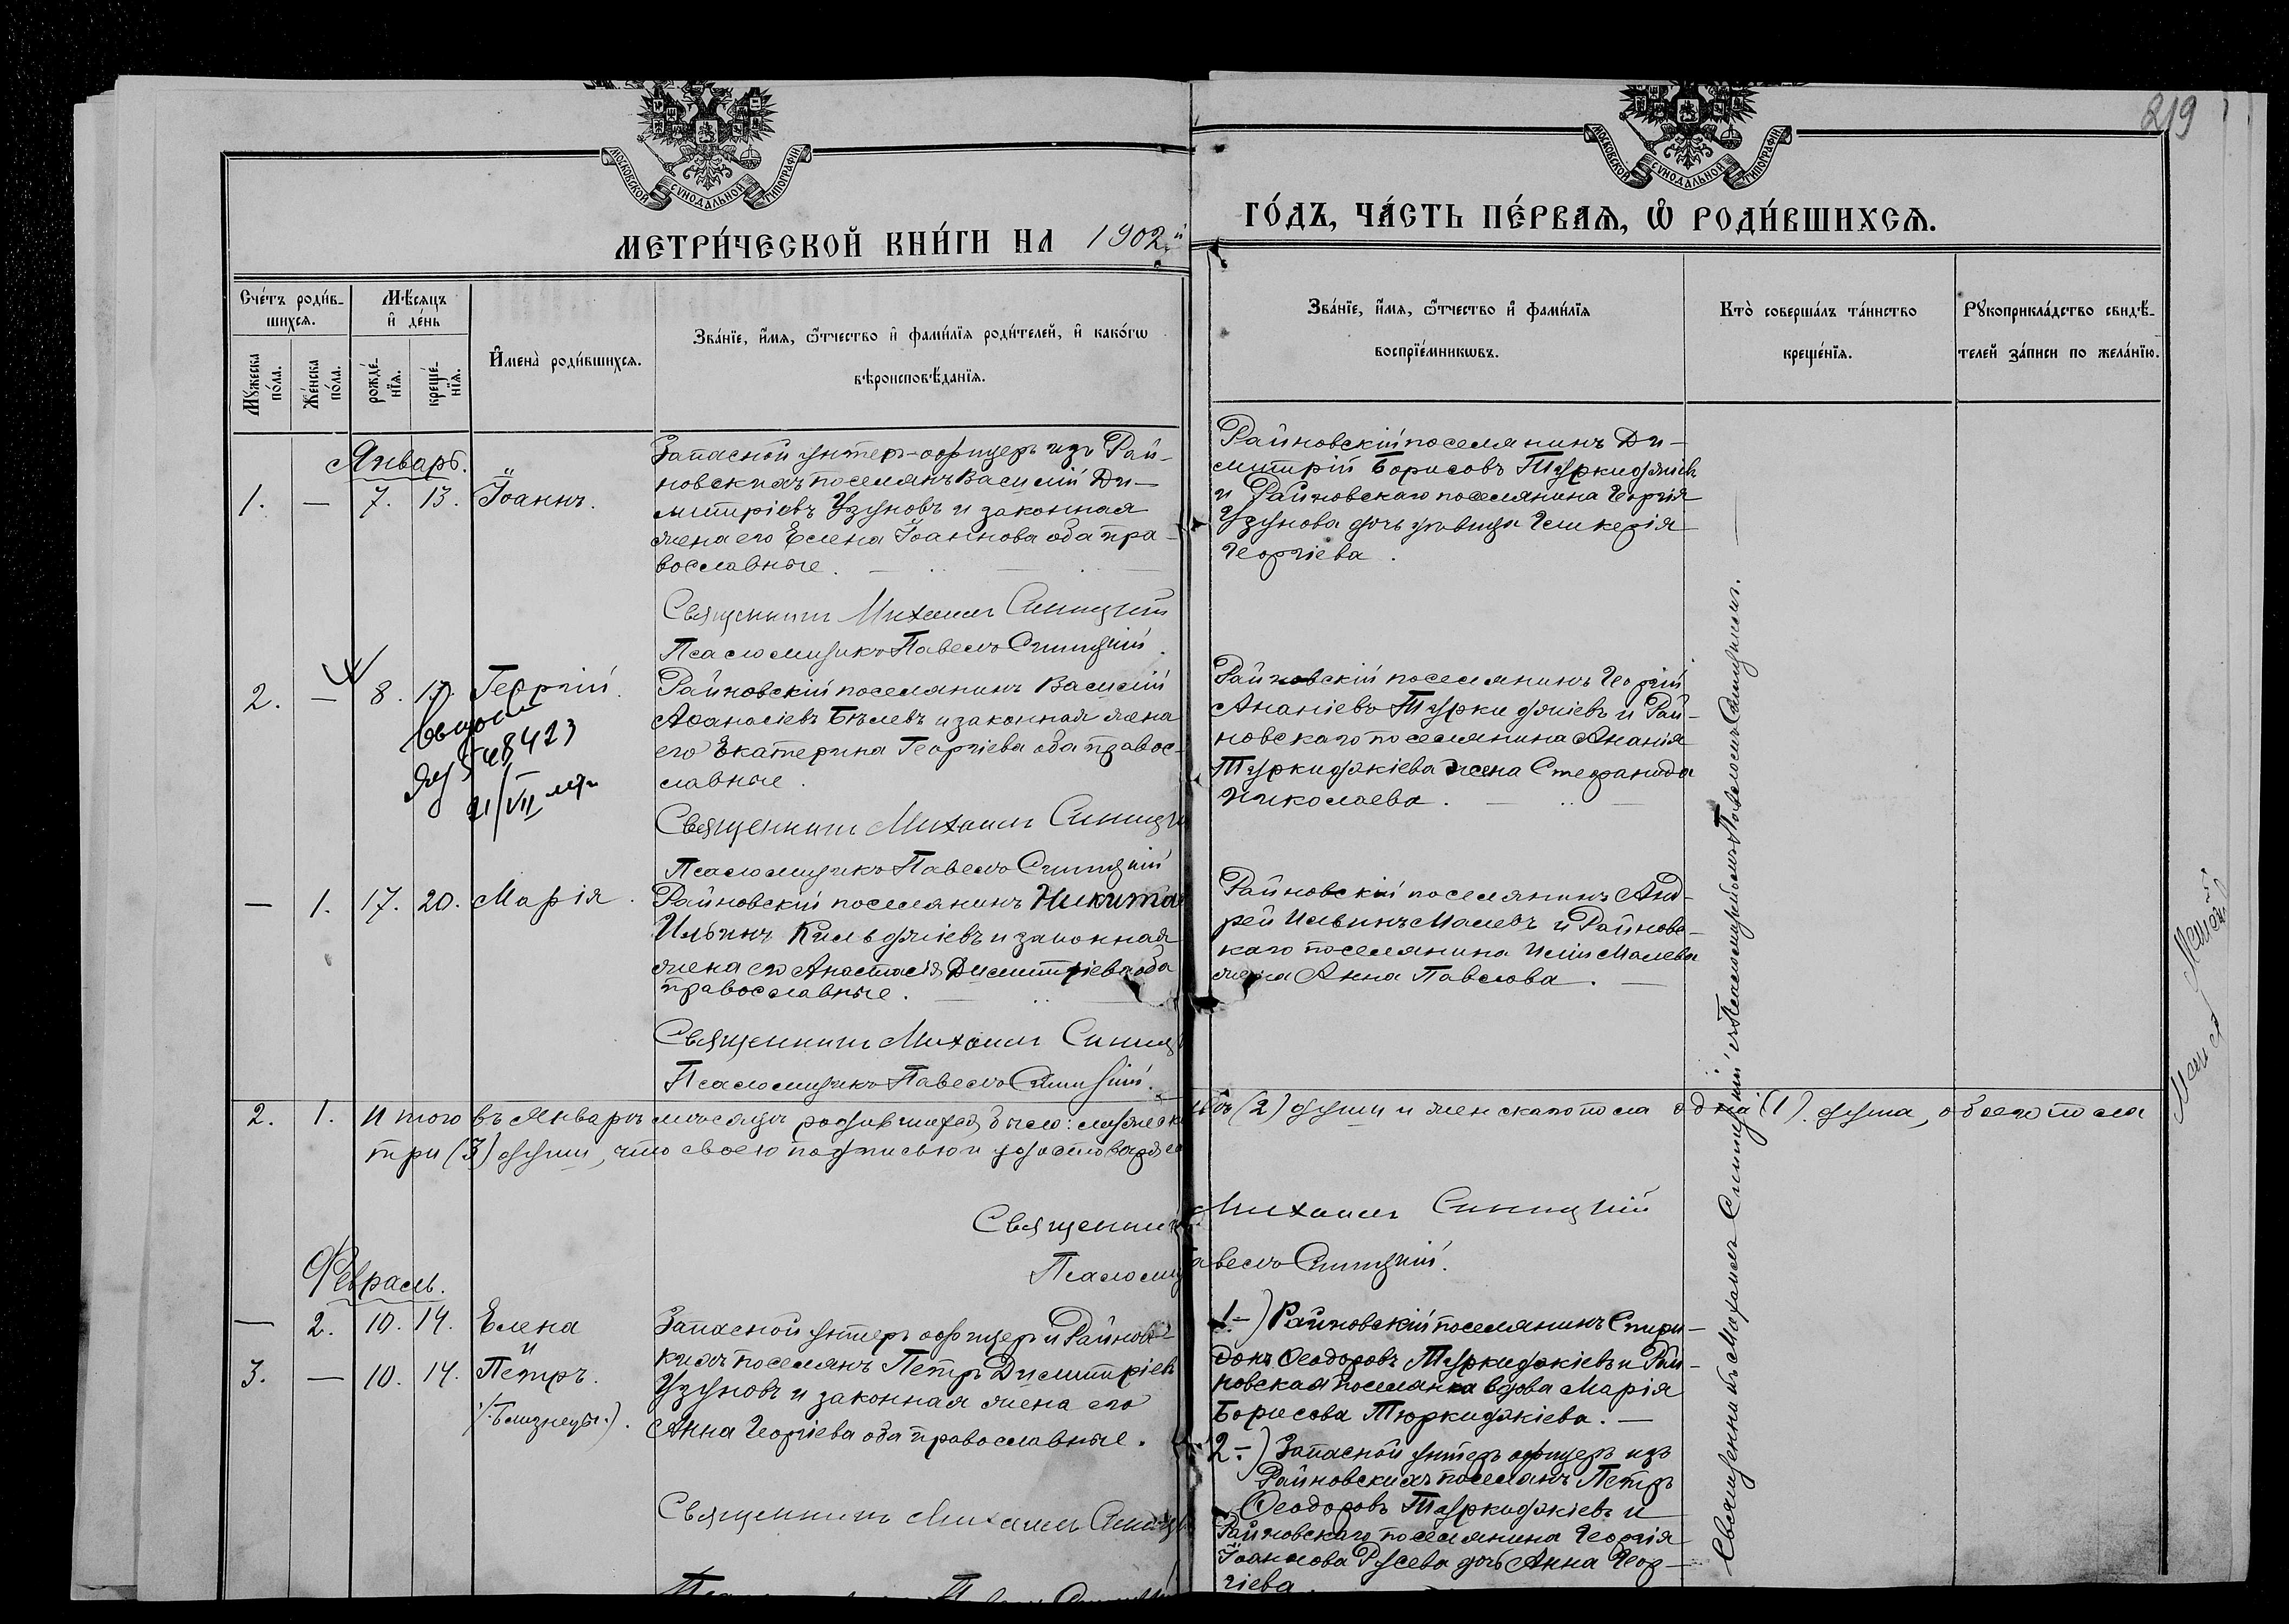 МОСКОВСКОЙ СѴНОДАЛЬНОЙ ТИПОГРАФІИ
МОСКОВСКОЙ СѴНОДАЛЬНОЙ ТИПОГРАФІИ
219
МЕТРИ́ЧЕСКОЙ КНИ́ГИ НА 1902й
ГО́ДЪ, ЧА́СТЬ ПЕ́РВАѦ, Ѡ҆ РОДИ́ВШИХСѦ.
Сче́тъ роди́в-
шихсѧ.
Мꙋ́жеска по́ла.
Же́нска по́ла.
Мѣ́сѧцъ
и҆ де́нь
рожде́-
нїѧ.
креще́-
нїѧ.
И҆мена̀ роди́вшихсѧ.
Зва́нїе, и҆́мѧ, ѻ҆́тчество и҆ фами́лїѧ роди́телей, и҆ како́гѡ
вѣроисповѣ́данїѧ.
Зва́нїе, и҆́мѧ, ѻ҆́тчество и҆ фами́лїѧ
воспрїе́мникѡвъ.
Кто̀ соверша́лъ та́инство
креще́нїѧ.
Рꙋкоприкла́дство свидѣ́-
телей за́писи по жела́нїю.
Январь.
1. — 7. 13. Іоаннъ.
Запасной унтеръ-офицеръ изъ Рай-
новскихъ поселянъ Василій Ди-
митріевъ Узуновъ и законная
жена его Елена Іоаннова оба пра-
вославные.
Священникъ Михаилъ Синицкій
Псаломщикъ Павелъ Синицкій.
Райновскій поселянинъ Ди-
митрій Борисовъ Тюркиджіевъ
и Райновскаго поселянина Георгія
Узунова дочь
Георгіева.
2. — 8. 17. Георгій.
48423
21/VII
Райновскій поселянинъ Василій
Аѳанасіевъ Бѣлевъ и законная жена
его Екатерина Георгіева оба правос-
славные.
Священникъ Михаилъ Синицкій
Псаломщикъ Павелъ Синицкій
Райновскій поселянинъ Георгій
Ананіевъ Тюркиджіевъ и Рай-
новскаго поселянина Ананія
Тюркиджіева жена Стефанида
Николаева.
— 1. 17. 20. Марія.
Райновскій поселянинъ Никита
Ильинъ Кильджіевъ и законная
жена его Анастасія Димитріева оба
православные.
Священникъ Михаилъ Синицкій
Псаломщикъ Павелъ Синицкій.
Райновскій поселянинъ Анд-
рей Ильинъ Малевъ и Райновс-
каго поселянина Иліи Малева
жена Анна Павлова.
2. 1. Итого въ Январѣ мѣсяцѣ родившихся было: мужеска двѣ (2) души и женскаго пола одна (1) душа, обоего пола
три (3) души, что своею подписью и удостовѣряе
Священникъ Михаилъ Синицкій
Псаломщ авелъ Синицкій.
Февраль.
— 2. 10. 14. Елена
и
3. — 10. 14. Петръ.
(близнецы).
Запасной унтеръ офицеръ и Райновс-
кихъ поселянъ Петръ Димитріевъ
Узуновъ и законная жена его
Анна Георгіева оба православные.
Священникъ Михаилъ Синицк
1-) Райновскій поселянинъ Спири-
донъ Ѳеодоровъ Тюркиджіевъ и Рай-
новская поселянка вдова Марія
Борисова Тюркиджіева.
2-) Запасной унтеръ офицеръ изъ
Райновскихъ поселянъ Петръ
Ѳеодоровъ Тюркиджіевъ и
Райновскаго поселянина Георгія
Іоаннова Русева дочь Анна Геор-
гіева.
Священникъ Михаилъ Синицкій и Псаломщикъ Павелъ Синицкій.